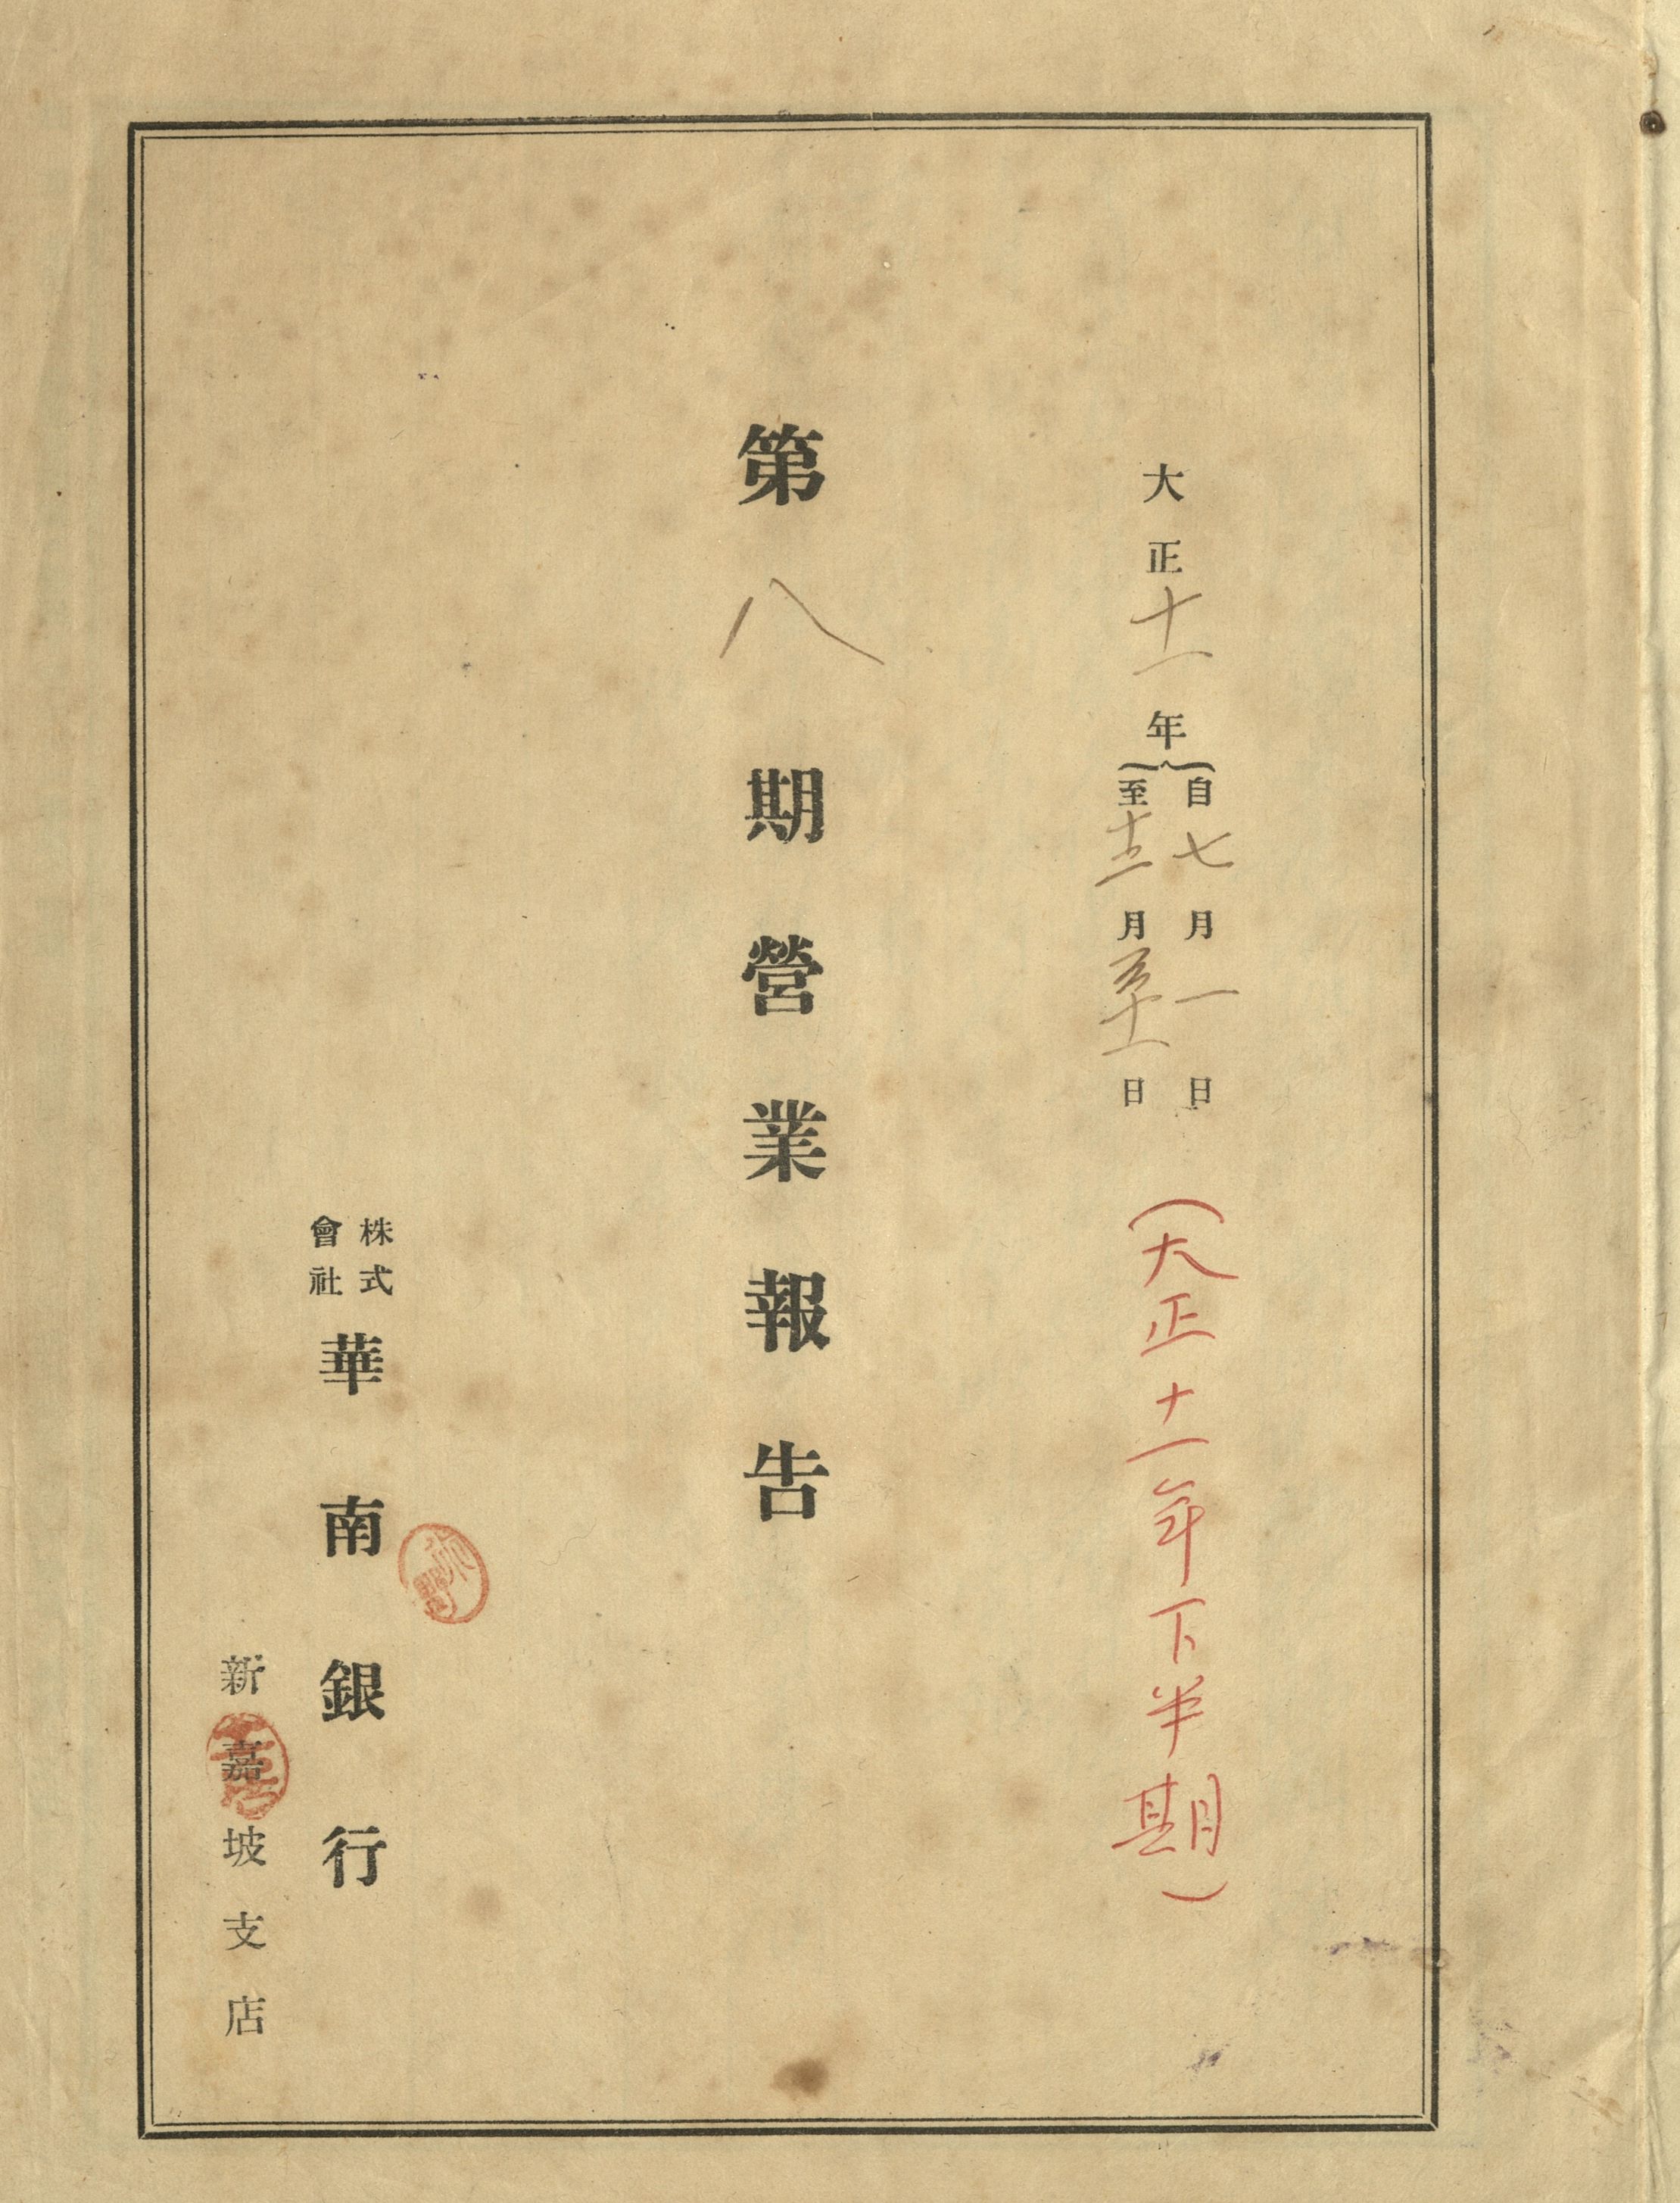 大正十一年自七月一日
至十二月三十一日
(大正十一年下半期)
第八期營業報告
株式會社華南銀行
新嘉坡支店